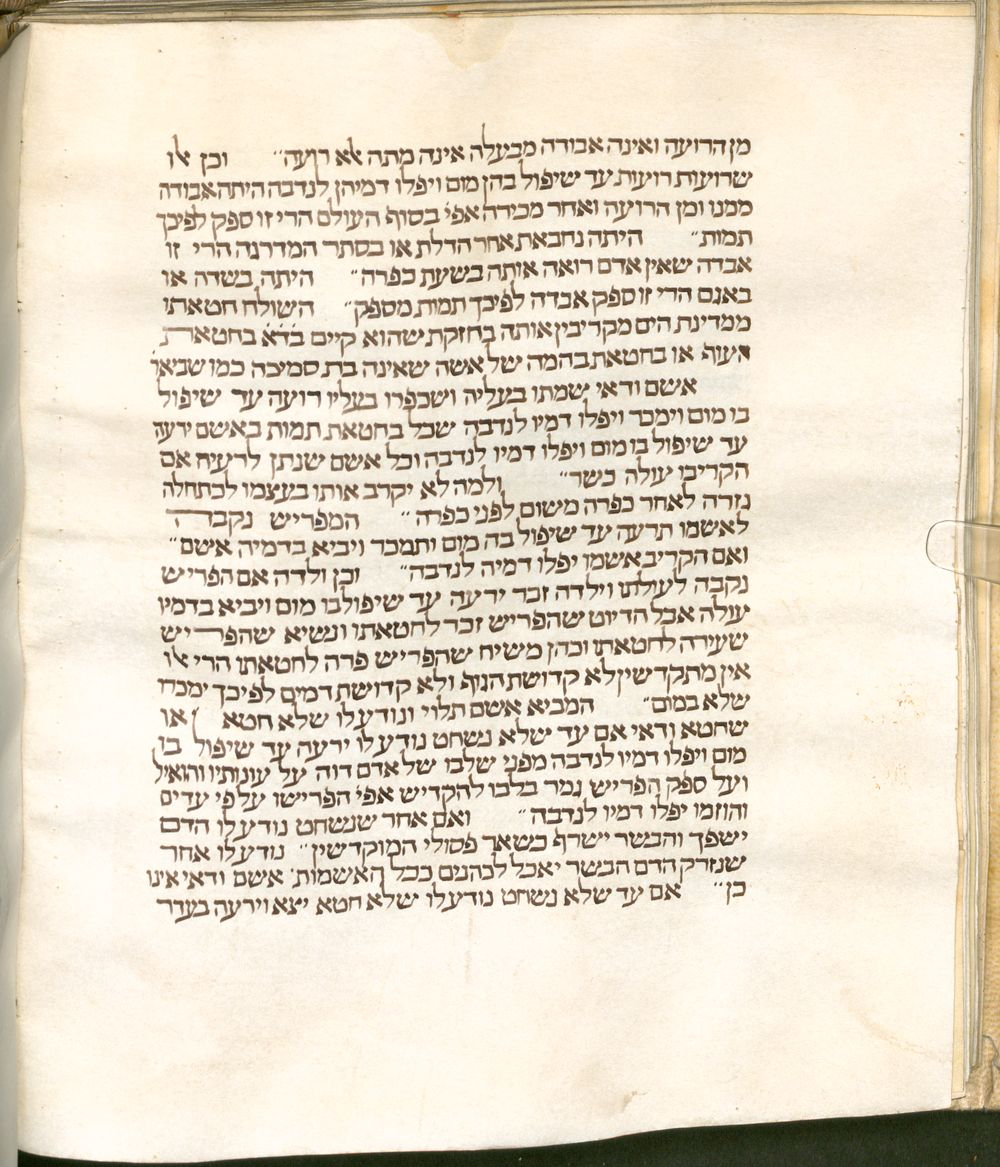 מן הרועה ואינה אבודה מבעלה אינה מתה אלא רועה״ וכן אלו
שרועות רועות עד שיפול בהן מום ויפלו דמיהן לנדבה היתה אבודה
ממנו ומן הרועה ואחר מכירה אפי׳ בסוף העולם הרי זו ספק לפיכך
תמות״ היתה נחבאת אחר הדלת או בסתר המדרגה הרי זו
אבדה שאין אדם רואה אותה בשעת כפרה״ היתה בשדה או
באגם הרי זו ספק אבדה לפיכך תמות מספק״ השולח חטאתו
ממדינת הים מקריבין אותה בחזקת שהוא קיים בד״א בחטאת
העוף או בחטאת בהמה של אשה שאינה בת סמיכה כמו שביאר׳
אשם ודאי שמתו בעליה ושכפרו בעליו רועה עד שיפול
בו מום וימכר ויפלו דמיו לנדבה שכל בחטאת תמות באשם ירעה
עד שיפול בו מום ויפלו דמיו לנדבה וכל אשם שנתן לרעיה אם
הקריבו עולה כשר״ ולמה לא יקרב אותו בעצמו לכתחלה
גזרה לאחר כפרה משום לפני כפרה״ המפריש נקבה
לאשמו תרעה עד שיפול בה מום ותמכר ויביא בדמיה אשם״
ואם הקריב אשמו יפלו דמיה לנדבה״ וכן ולדה אם הפריש
נקבה לעולתו וילדה זכר ירעה עד שיפול בו מום ויביא בדמיו
עולה אבל הדיוט שהפריש זכר לחטאתו ונשיא שהפריש
שעירה לחטאתו וכהן משיח שהפריש פרה לחטאתו הרי אלו
אין מתקדשין לא קדושת הגוף ולא קדושת דמים לפיכך ימכרו
שלא במום״ המביא אשם תלוי ונודע לו שלא חטא או
שחטא ודאי אם עד שלא נשחט נודע לו ירעה עד שיפול בו
מום ויפלו דמיו לנדבה מפני שלבו של אדם דוה על עונותיו והואיל
ועל ספק הפריש גמר בלבו להקדיש אפי׳ הפרישו על פי עדים
והוזמו יפלו דמיו לנדבה״ ואם אחר שנשחט נודע לו הדם
ישפך והבשר ישרף כשאר פסולי המוקדשין״ נודע לו אחר
שנזרק הדם הבשר יאכל לכהנים ככל האשמות׳ אשם ודאי אינו
כן״ אם עד שלא נשחט נודע לו שלא חטא יצא וירעה בעדר